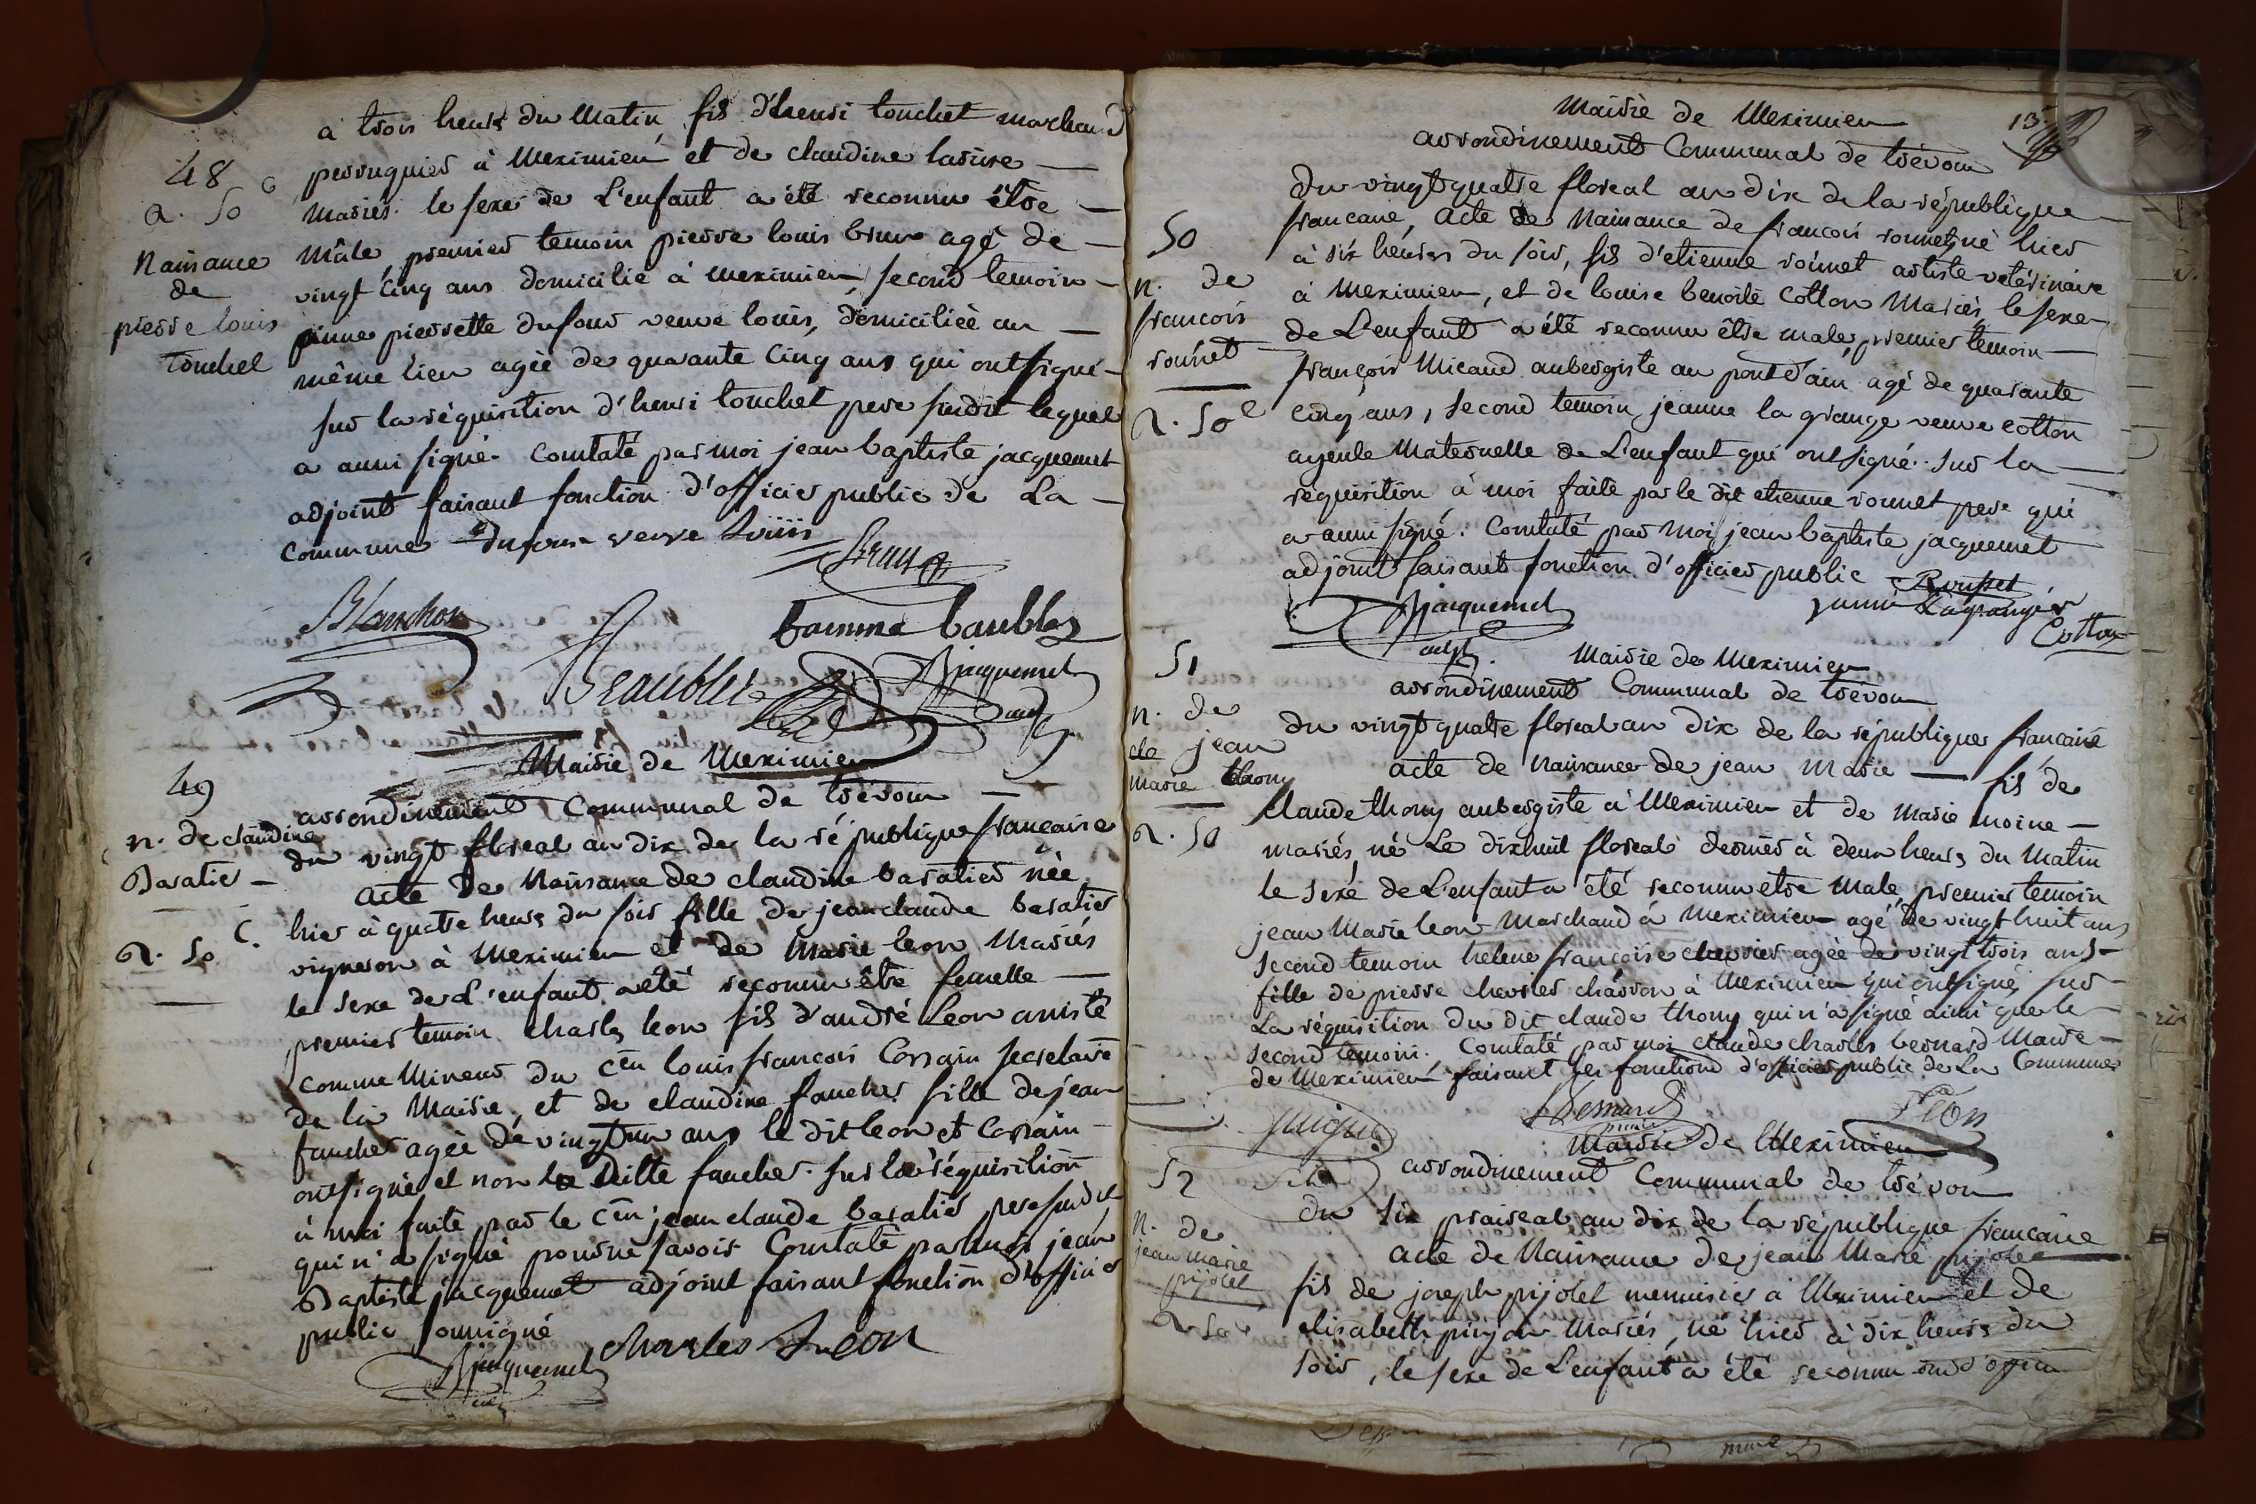 à trois heures du Matin, fils d'henri touchet marchand
perruquier à Meximieu et de claudine lavure
48
a. 50 c
Mariés. le sexe de L'enfant a été reconnu être
Naissance
de
pierre louis
touchet
Mâle premier temoin pierre louis brun agé de
vingt cinq ans domicilié à Meximieu, second temoin
pierrette dufour veuve louis, domiciliée au
même lieu agée de quarante cinq ans qui ont signé
sur la réquisition d'henri touchet pere susdit lequel
a aussi signé. Constaté par moi jean baptiste jacquemet
adjoint faisant fonction d'officier public de La
Commune dufour veuve Louis
Brun
Blanchon
jacquemet
adj
49
Mairie de Meximieu
arrondissement Communal de trévoux
n. de claudine
baratier
a. 50 c.
du vingt floreal an dix de la république française
acte de Naissance de claudine baratier née
hier à quatre heures du soir fille de jean claude baratier
vigneron à Meximieu et de Marie leon Mariés
le sexe de L'enfant a été reconnu être femelle
premier temoin charles leon fils d'andré Leon assisté
comme Mineur du Cen louis françois Corsain secretaire
de la Mairie, et de claudine faucher fille de jean
faucher agée de vingt un ans le dit leon et Corsain
ont signé et non la ditte faucher. sur la réquisition
à moi faite par le Cen jean claude baratier pere susdit
qui n'a signé pour ne savoir Constaté par moi jean
Baptiste jacquemet adjoint faisant fonction d'officier
public soussigné
jacquemet charles Leon
adj
13
Mairie de Meximieu
arrondissement Communal de trévoux
50
n. de
françois
rounet
a. 50 c
du vingt quatre floreal an dix de la république
francaise, acte de Naissance de francois rounet né hier
à six heures du soir, fils d'etienne rounet artiste vetérinaire
à Meximieu, et de louise benoite Cotton Mariés, le sexe
de L'enfant a été reconnu être male, premier temoin
françois Micaud aubergiste au pont d'ain agé de quarante
cinq ans, second temoin jeanne la grange veuve cotton
ayeule Maternelle de L'enfant qui ont signé. sur la
requisition à moi faite par le dit etienne rounet pere qui
a aussi signé. Constaté par Moi jean baptiste jacquemet
adjoint faisant fonction d'officier public
jacquemet
adj.
Lagrange
Cotton
51
Mairie de Meximieu
arrondissement Communal de trévoux
n. de
jean
marie thony
a. 50
du vingt quatre floreal an dix de la république francaise
acte de Naissance de jean Marie fils de
claude thony aubergiste à Meximieu et de Marie moine
mariés, né Le dixhuit floreal dernier à deux heures du Matin
le sexe de L'enfant a été reconnu etre Male, premier temoin
jean Marie leon Marchand à Meximieu agé de vingt huit ans
second temoin helene françoise chevrier agée de vingt trois ans
fille de pierre chevrier charron à Meximieu qui ont signé, sur
La réquisition du dit claude thony qui n'a signé ainsi que le
second temoin. Constaté par moi claude charles bernard Maire
de Meximieu faisant les fonctions d'officier public de La Commune
Bernard
Leon
52
Mairie de Meximieu
arrondissement Communal de trévoux
N. de
jean marie
pijolet
a. 50 c
du six praireal an dix de la république francaise
acte de Naissance de jean Marie pijolet
fils de joseph pijolet menuisier à Meximieu et de
elisabeth pinjon Mariés, né hier à dix heures du
soir, le sexe de L'enfant a été reconnu